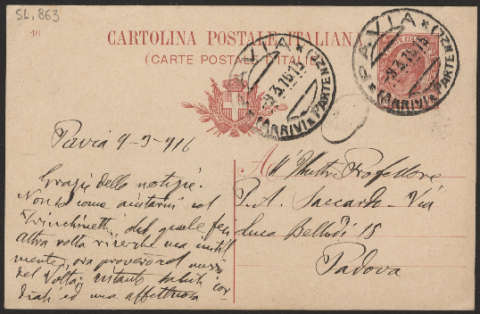 SL. 863
CARTOLINA POSTALE ITALIANA
(CARTE POSTALE D'ITALIE)
PAVIA
9.3.16 15
(ARRIVI E PARTENZE)
PAVIA
9.3.16 15
(ARRIVI E PARTENZE)
Pavia 9-3-916
Grazie delle notizie.
Non so come aiutarvi col
del quale feci
altra volta ricerche ma inutil
mente, ora proverò nel museo
del Volta. Intanto saluti cor
diali ed una affettuosa
All' Illustre Professore
P. A. Saccardo - Via
Luca Belludi 15
Padova